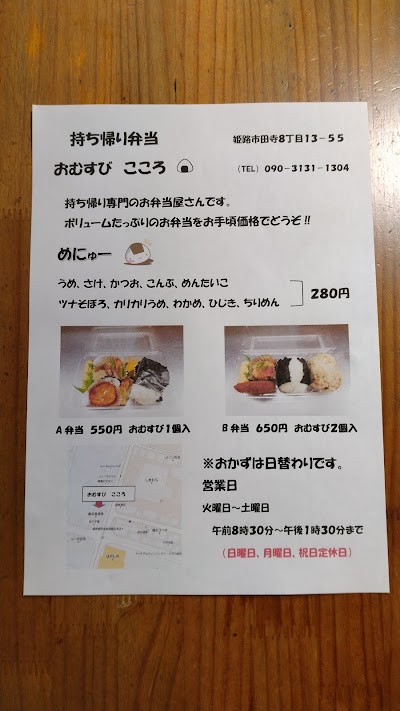 持ち帰り弁当
姫路市田寺8丁目13-55
おむすび こころ
(TEL) 090-3131-1304
持ち帰り専門のお弁当屋さんです。
ボリュームたっぷりのお弁当をお手頃価格でどうぞ!!
めにゅー
うめ、さけ、かつお、こんぶ、めんたいこ
ツナそぼろ、カリカリうめ、わかめ、ひじき、ちりめん
280円
A弁当 550円 おむすび1個入
B弁当 650円 おむすび2個入
おむすび こころ
※おかずは日替わりです。
営業日
火曜日~土曜日
午前8時30分~午後1時30分まで
(日曜日、月曜日、祝日定休日)